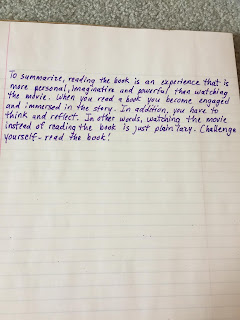 To summarize, reading the book is an experience that is
more personal, imaginative and powerful than watching
the movie. When you read a book you become engaged
and immersed in the story. In addition, you have to
think and reflect. In other words, watching the movie
instead of reading the book is just plain lazy. Challenge
yourself - read the book!